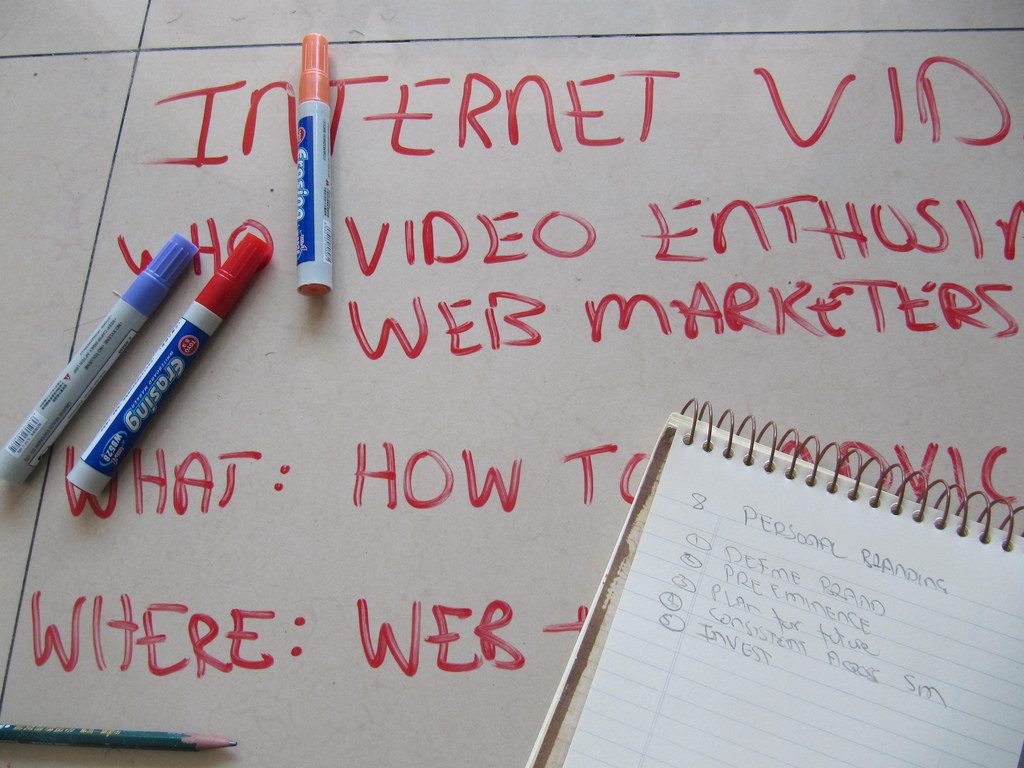 INTERNET VID
WHO VIDEO ENTHUSIN
WEB MARKETERS
WHAT: HOW TO
WHERE: WEB
Erasing
TOYO
Erasing
WHITEBOARD MARKER
WB528
8 PERSONAL BRANDING
① DEFINE BRAND
② PREEMINENCE
③ PLAN for future
④ CONSISTENT ACROSS SM
⑤ INVEST